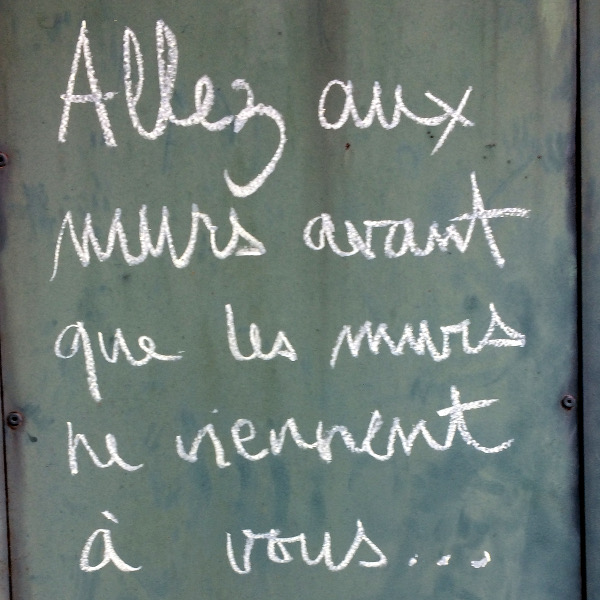 Allez aux
murs avant
que les murs
ne viennent
à vous...